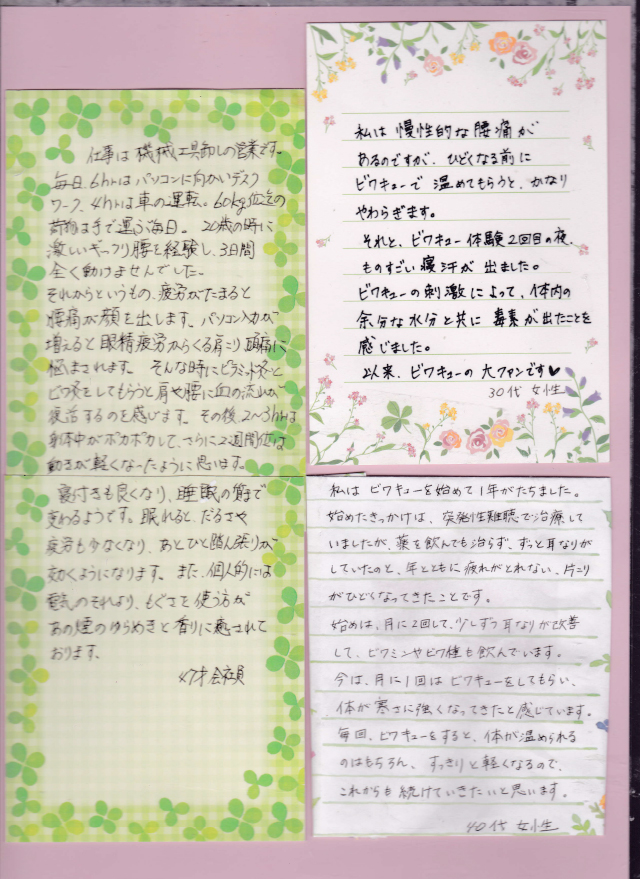 仕事は機械工具卸しの営業です。
毎日、6hrはパソコンに向かいデスク
ワーク、4hrは車の運転。60kg位迄の
荷物は手で運ぶ毎日。20歳の時に
激しいギックリ腰を経験し、3日間
全く動けませんでした。
それからというもの、疲労がたまると
腰痛が顔を出します。パソコン入力が
増えると眼精疲労からくる肩こり頭痛に
悩まされます。そんな時にピラミット灸と
ビワ灸をしてもらうと肩や腰に血の流れが
復活するのを感じます。その後、2〜3hrは
身体中がポカポカして、さらに2週間位は
動きが軽くなったように思います。
寝付きも良くなり、睡眠の質まで
変わるようです。眠れると、だるさや
疲労も少なくなり、あとひと踏ん張りが
効くようになります。また、個人的には
電気のそれより、もぐさを使う方が
あの煙のゆらめきと香りに癒されて
おります。
47才 会社員
私は 慢性的な腰痛が
あるのですが、ひどくなる前に
ビワキューで 温めてもらうと、かなり
やわらぎます。
それと、ビワキュー体験2回目の夜、
ものすごい寝汗が 出ました。
ビワキューの刺激によって、体内の
余分な水分と共に 毒素が出たことを
感じました。
以来、ビワキューの 大ファンです♥
30代 女性
私は ビワキューを始めて 1年がたちました。
始めたきっかけは、突発性難聴で治療して
いましたが、薬を飲んでも治らず、ずっと耳なりが
していたのと、年とともに疲れがとれない、片こり
がひどくなってきたことです。
始めは、月に2回して、少しずつ耳なりが改善
して、ビワミンやビワ種も飲んでいます。
今は、月に1回は ビワキューをしてもらい、
体が寒さに強くなってきたと感じています。
毎回、ビワキューをすると、体が温められる
のはもちろん、すっきりと軽くなるので、
これからも 続けていきたいと思います。
40代 女性